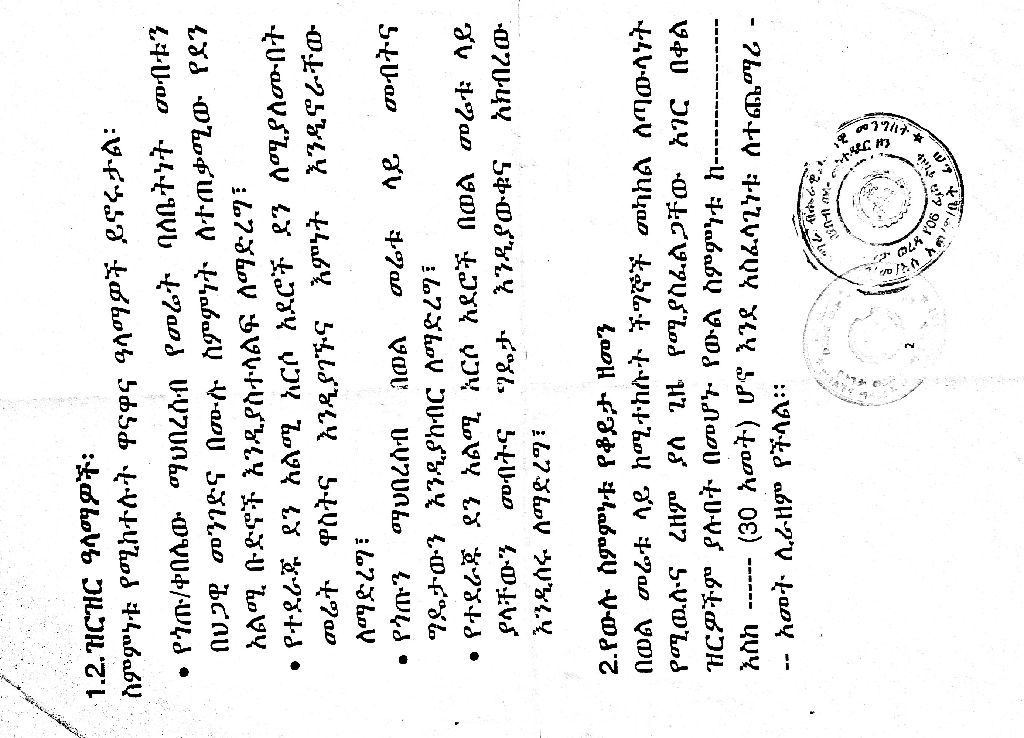 1.2.ዝርዝር ዓላማዎች፡
ስምምነቱ የሚከተሉት ዋናዋና ዓላማዎች ይኖሩታል፡
• የጎጡ/ቀበሌው ማህበረሰብ የመሬት ባለቤትነት መብቱን
በህጋዊ መንገድና በሙሉ ስምምነት ለተጠቃሚው የደን
አልሚ ቡድኖች እንዲያስተላልፍ ለማድረግ፤
• የተደራጁ ደን አልሚ አርሶ አደሮች ደን ለሚያለሙበት
መሬት ዋስትና እንዲያገኙና እምነት እንዲኖራቸው
ለማድረግ፤
• የጎጡን ማህበረሰብ በወል መሬቱ ላይ መብትና
ግዴታውን እንዲያከብር ለማድረግ፤
• የተደራጁ ደን አልሚ አርሶ አደሮች በወል መሬቱ ላይ
ያላቸውን መብትና ግዴታ እንዲያውቁና አክብረው
እንዲሰሩ ለማድረግ፤
2.የውሉ ስምምነቱ የቆይታ ዘመን
በወል መሬቱ ላይ ከሚተከሉት ችግኞች መካከል ለጣውላነት
የሚውሉና ረዘም ያለ ጊዜ የሚያስፈልጋቸው አገር በቀል
ዝርያዎችም ያሉበት በመሆኑ የውል ስምምነቱ ከ----------------
እስከ ------ (30 አመት) ሆኖ እንደ አስፈላጊነቱ ለተጨማሪ -
-- አመት ሊራዘም የችላል።
2